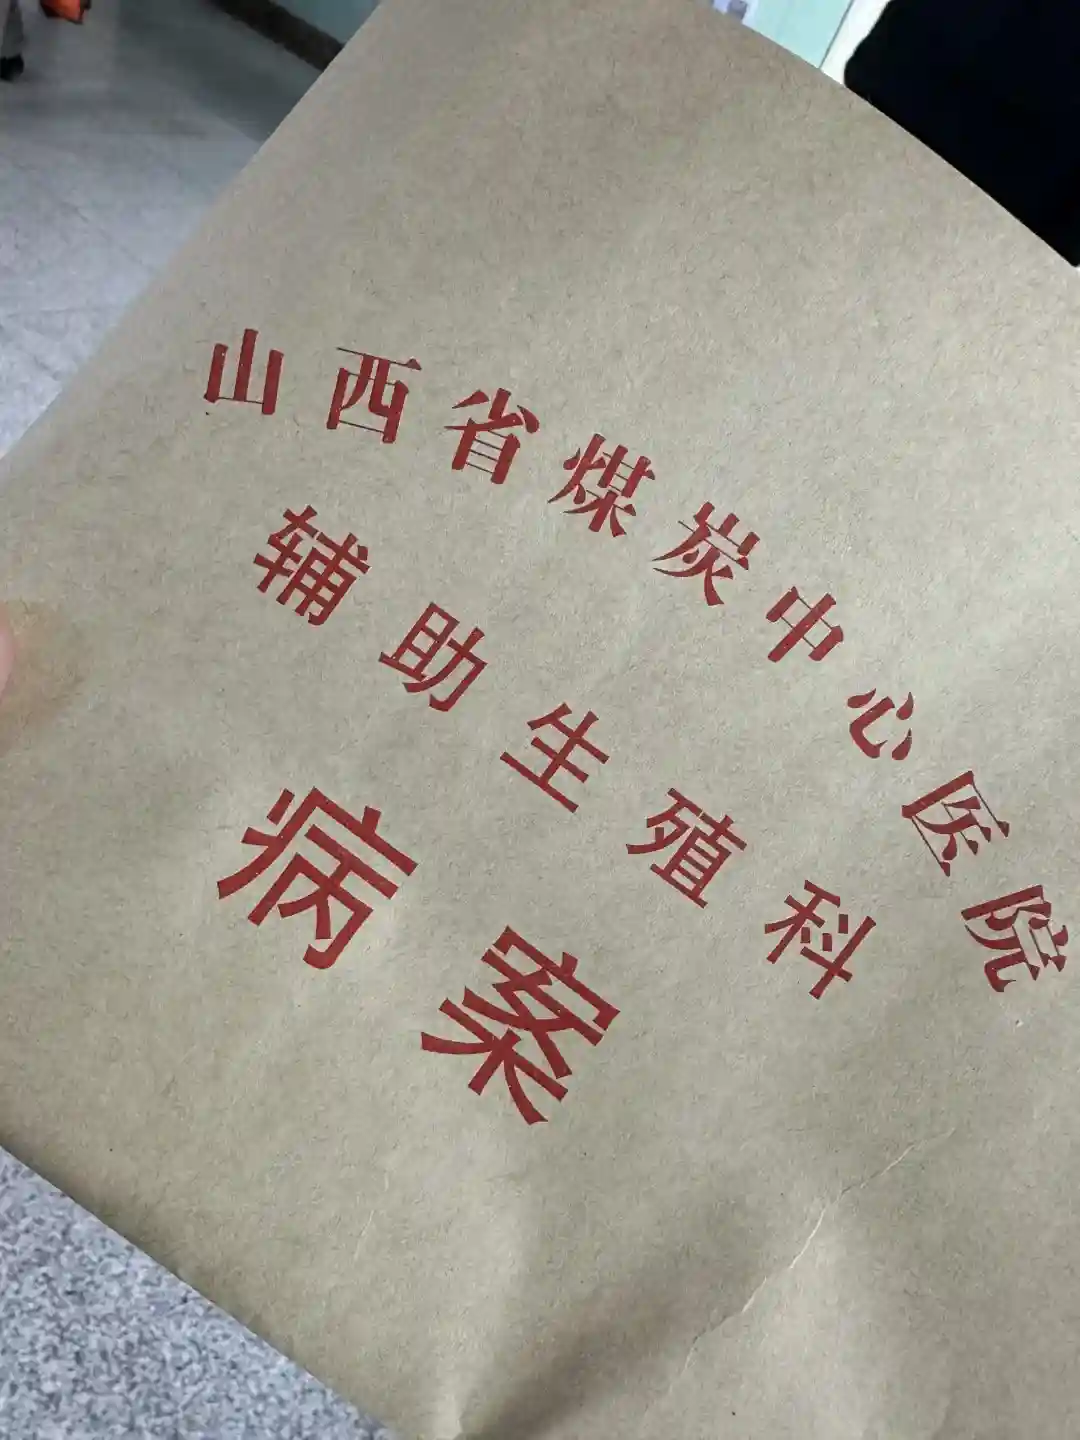 山西省煤炭中心医院
辅助生殖科
病案